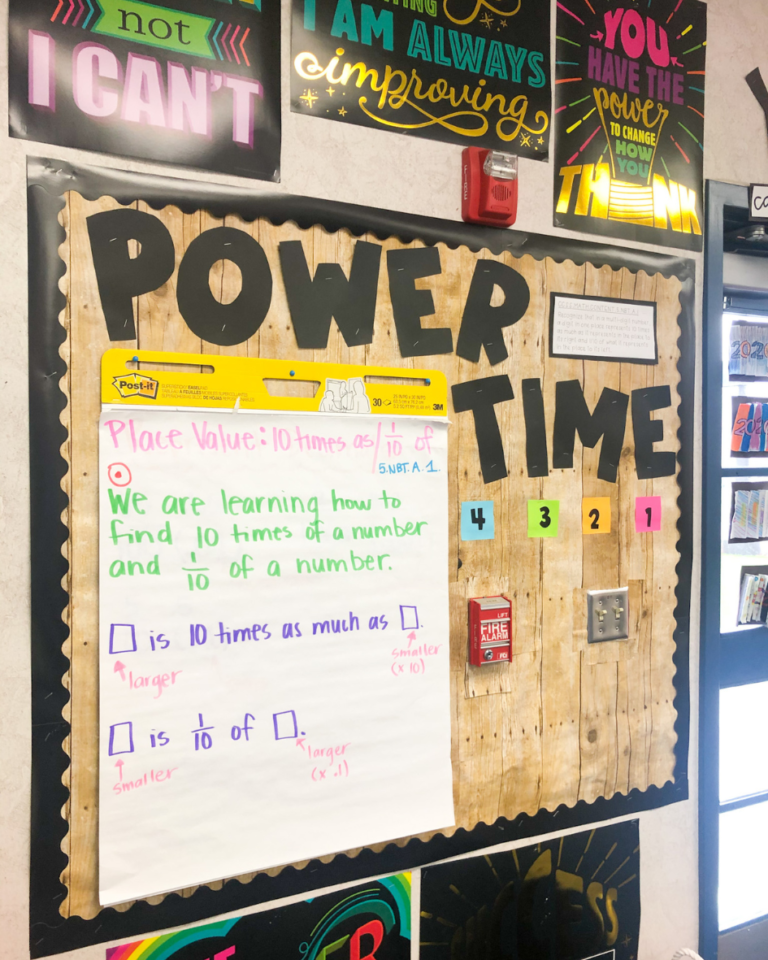 not
I CAN'T
I AM ALWAYS
improving
YOU
HAVE THE
power
TO CHANGE
HOW
YOU
THINK
POWER
TIME
Post-it
30
3M
Place Value: 10 times as / 1/10 of
5.NBT.A.1
We are learning how to
find 10 times of a number
and 1/10 of a number.
□ is 10 times as much as □.
larger
smaller
(x 10)
□ is 1/10 of □.
smaller
larger
(x .1)
4 3 2 1
LIFT
FIRE
ALARM